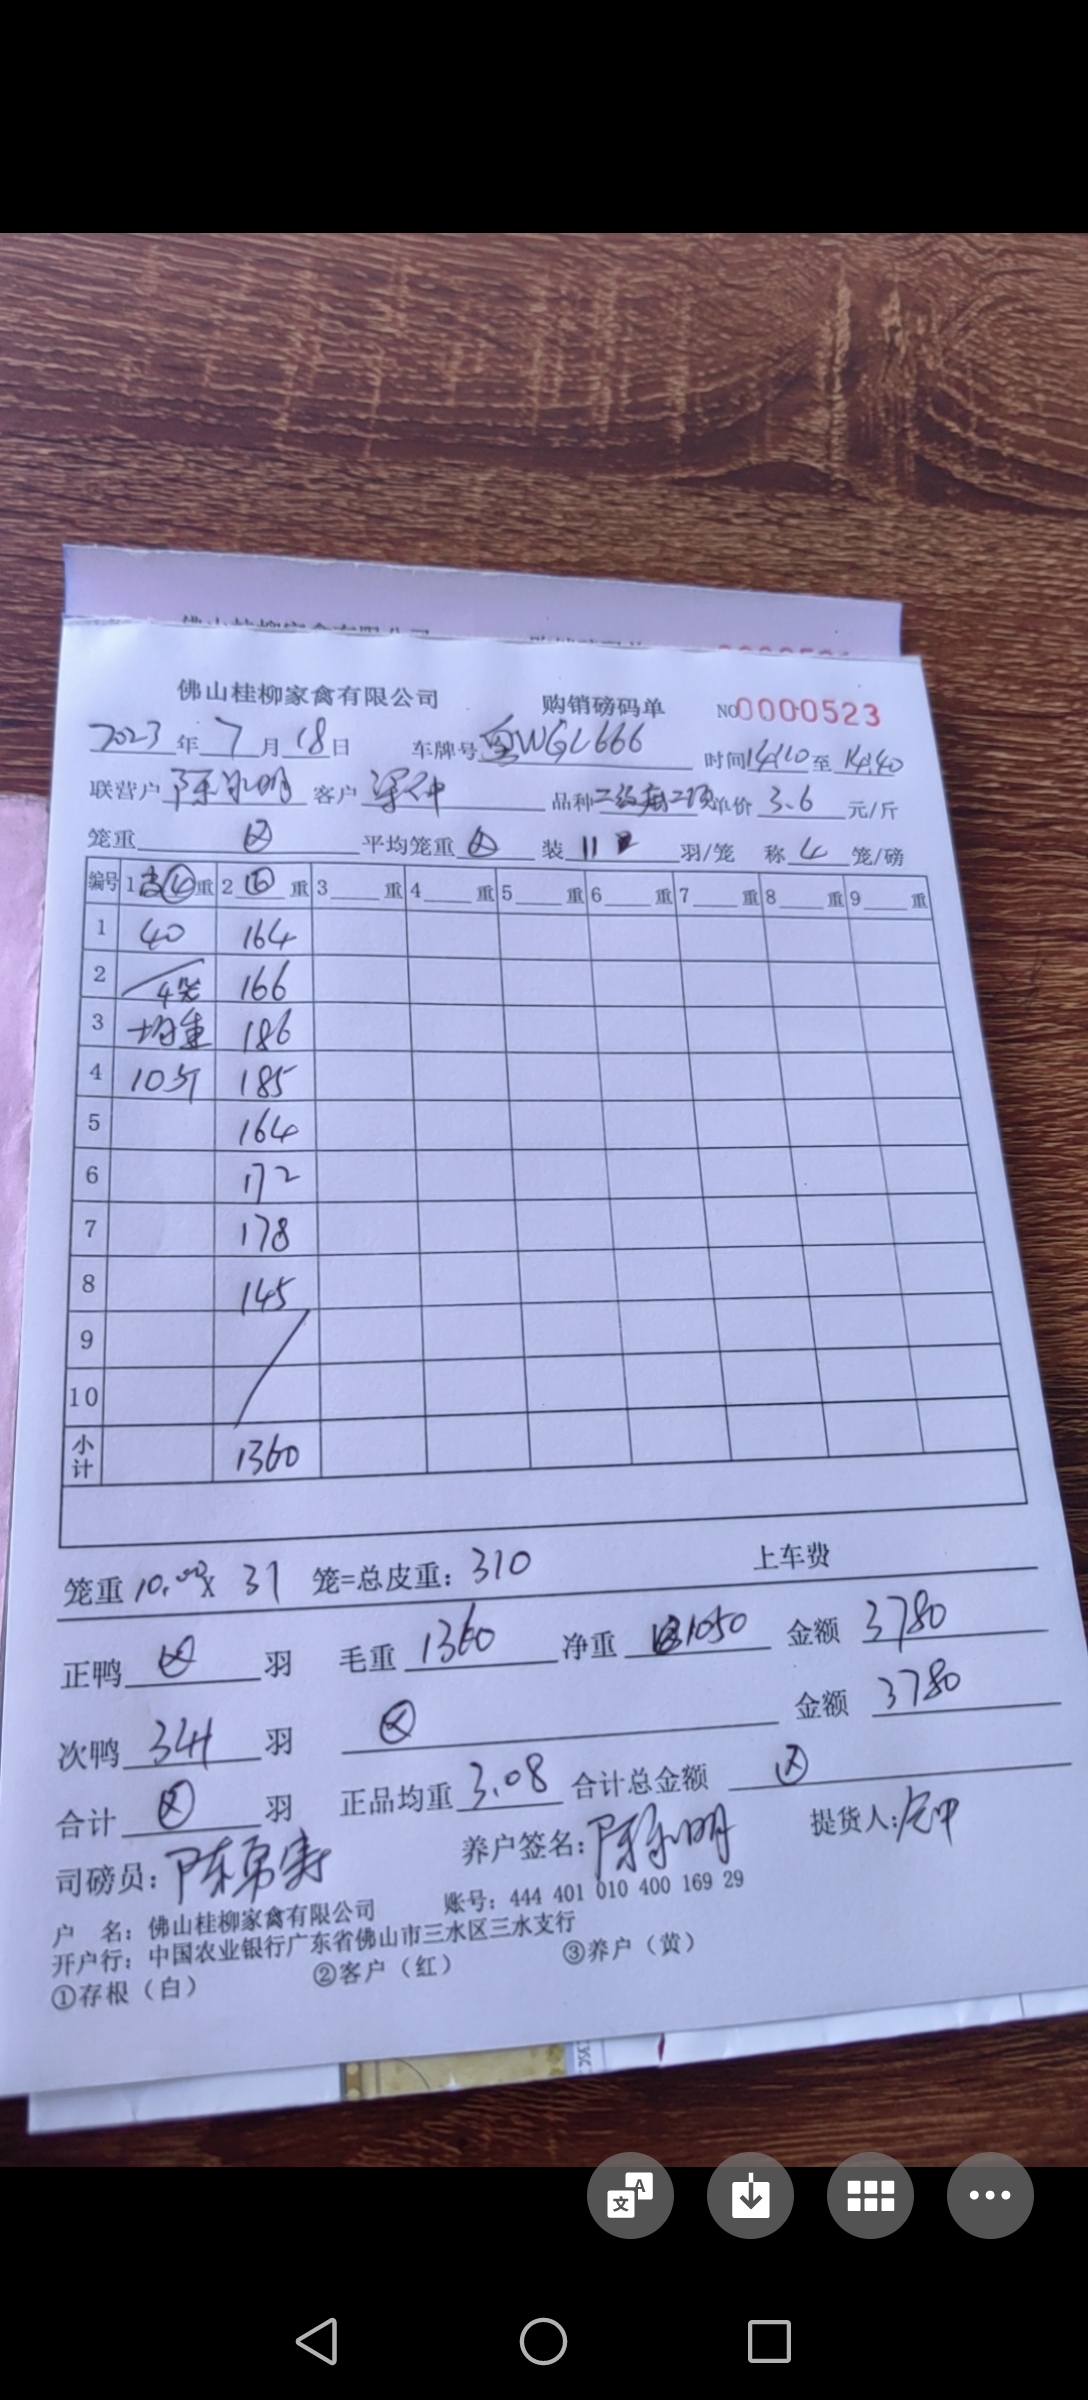 佛山桂柳家禽有限公司 购销磅码单 NO0000523
2023年7月18日 车牌号 WGL666 时间14:10至14:40
联营户 陈永明 客户 品种 单价 3.6 元/斤
笼重 平均笼重 装 11 羽/笼 称 4 笼/磅
编号 1 重 2 重 3 重 4 重 5 重 6 重 7 重 8 重 9 重
1 40 164
2 4笼 166
3 均重 186
4 10斤 185
5 164
6 172
7 178
8 145
9
10
小计 1360
笼重 10.00 x 31 笼=总皮重: 310 上车费
正鸭 羽 毛重 1360 净重 1050 金额 3780
次鸭 341 羽 金额 3780
合计 羽 正品均重 3.08 合计总金额
司磅员: 陈 养户签名: 陈永明 提货人:
户 名: 佛山桂柳家禽有限公司 账号: 444 401 010 400 169 29
开户行: 中国农业银行广东省佛山市三水区三水支行
①存根（白） ②客户（红） ③养户（黄）